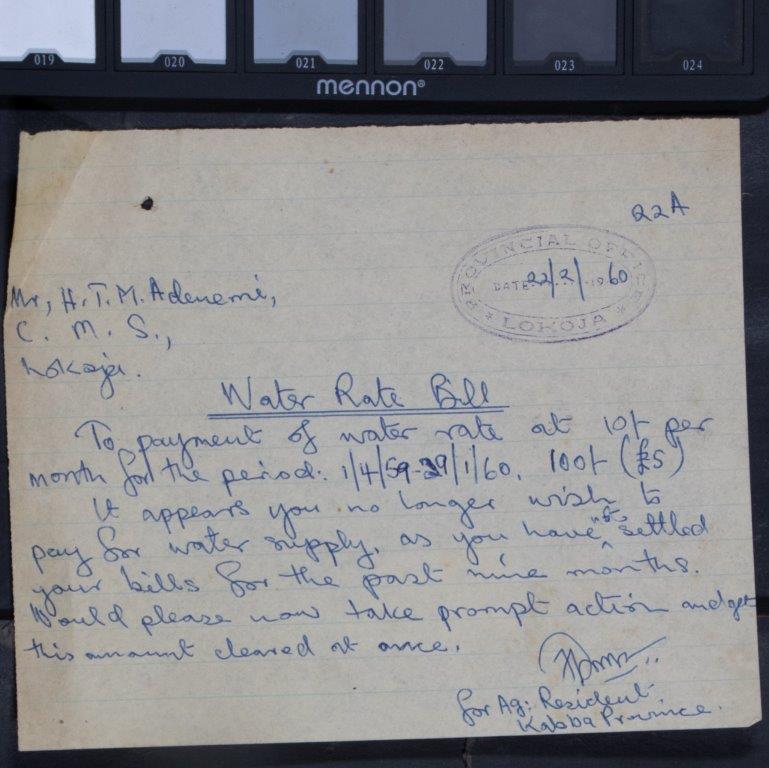 019 020 021 022 023 024
mennon®
22A
PROVINCIAL OFFICE
DATE 22/2/1960
* LOKOJA *
Mr, H.T.M. Adenemi,
C. M. S.,
Lokoja.
Water Rate Bill
To payment of water rate at 10/- per
month for the period: 1/4/59-29/1/60. 100/- (£5)
It appears you no longer wish to
pay for water supply, as you have not settled
your bills for the past nine months.
Would please now take prompt action and get
this amount cleared at once.
for Ag: Resident.
Kabba Province.